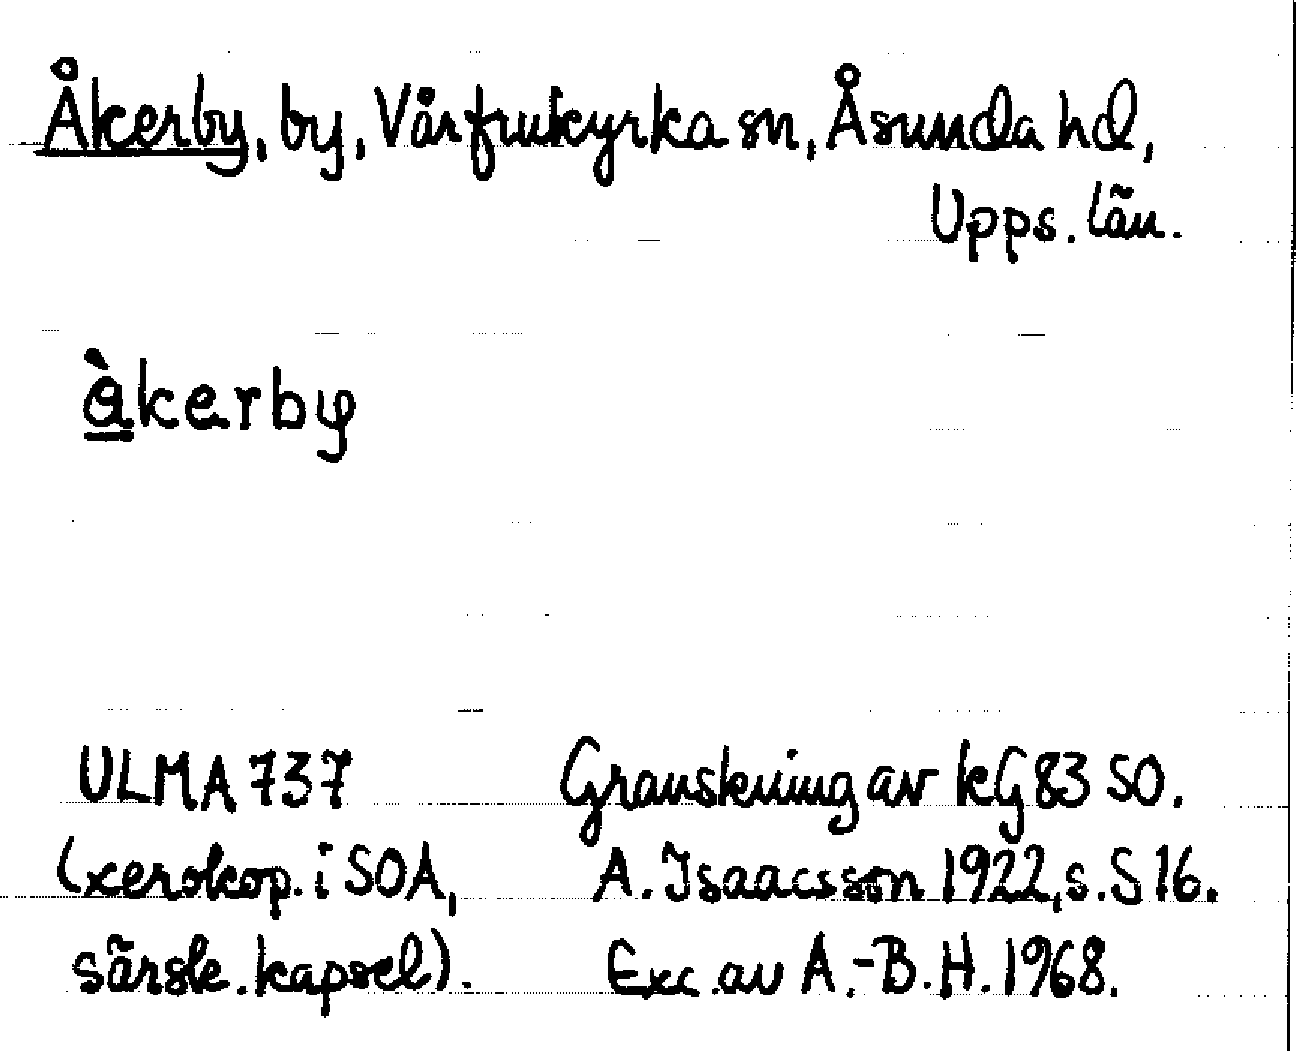 Åkerby, by, Vårfrukyrka sn, Åsunda hd,
Upps. län.
å̀kerby
ULMA 737 Granskning av kG 83 SO.
(xerokop. i SOA, A. Isaacsson 1922, s. S 16.
särsk. kapsel). Exc. av A.-B. H. 1968.